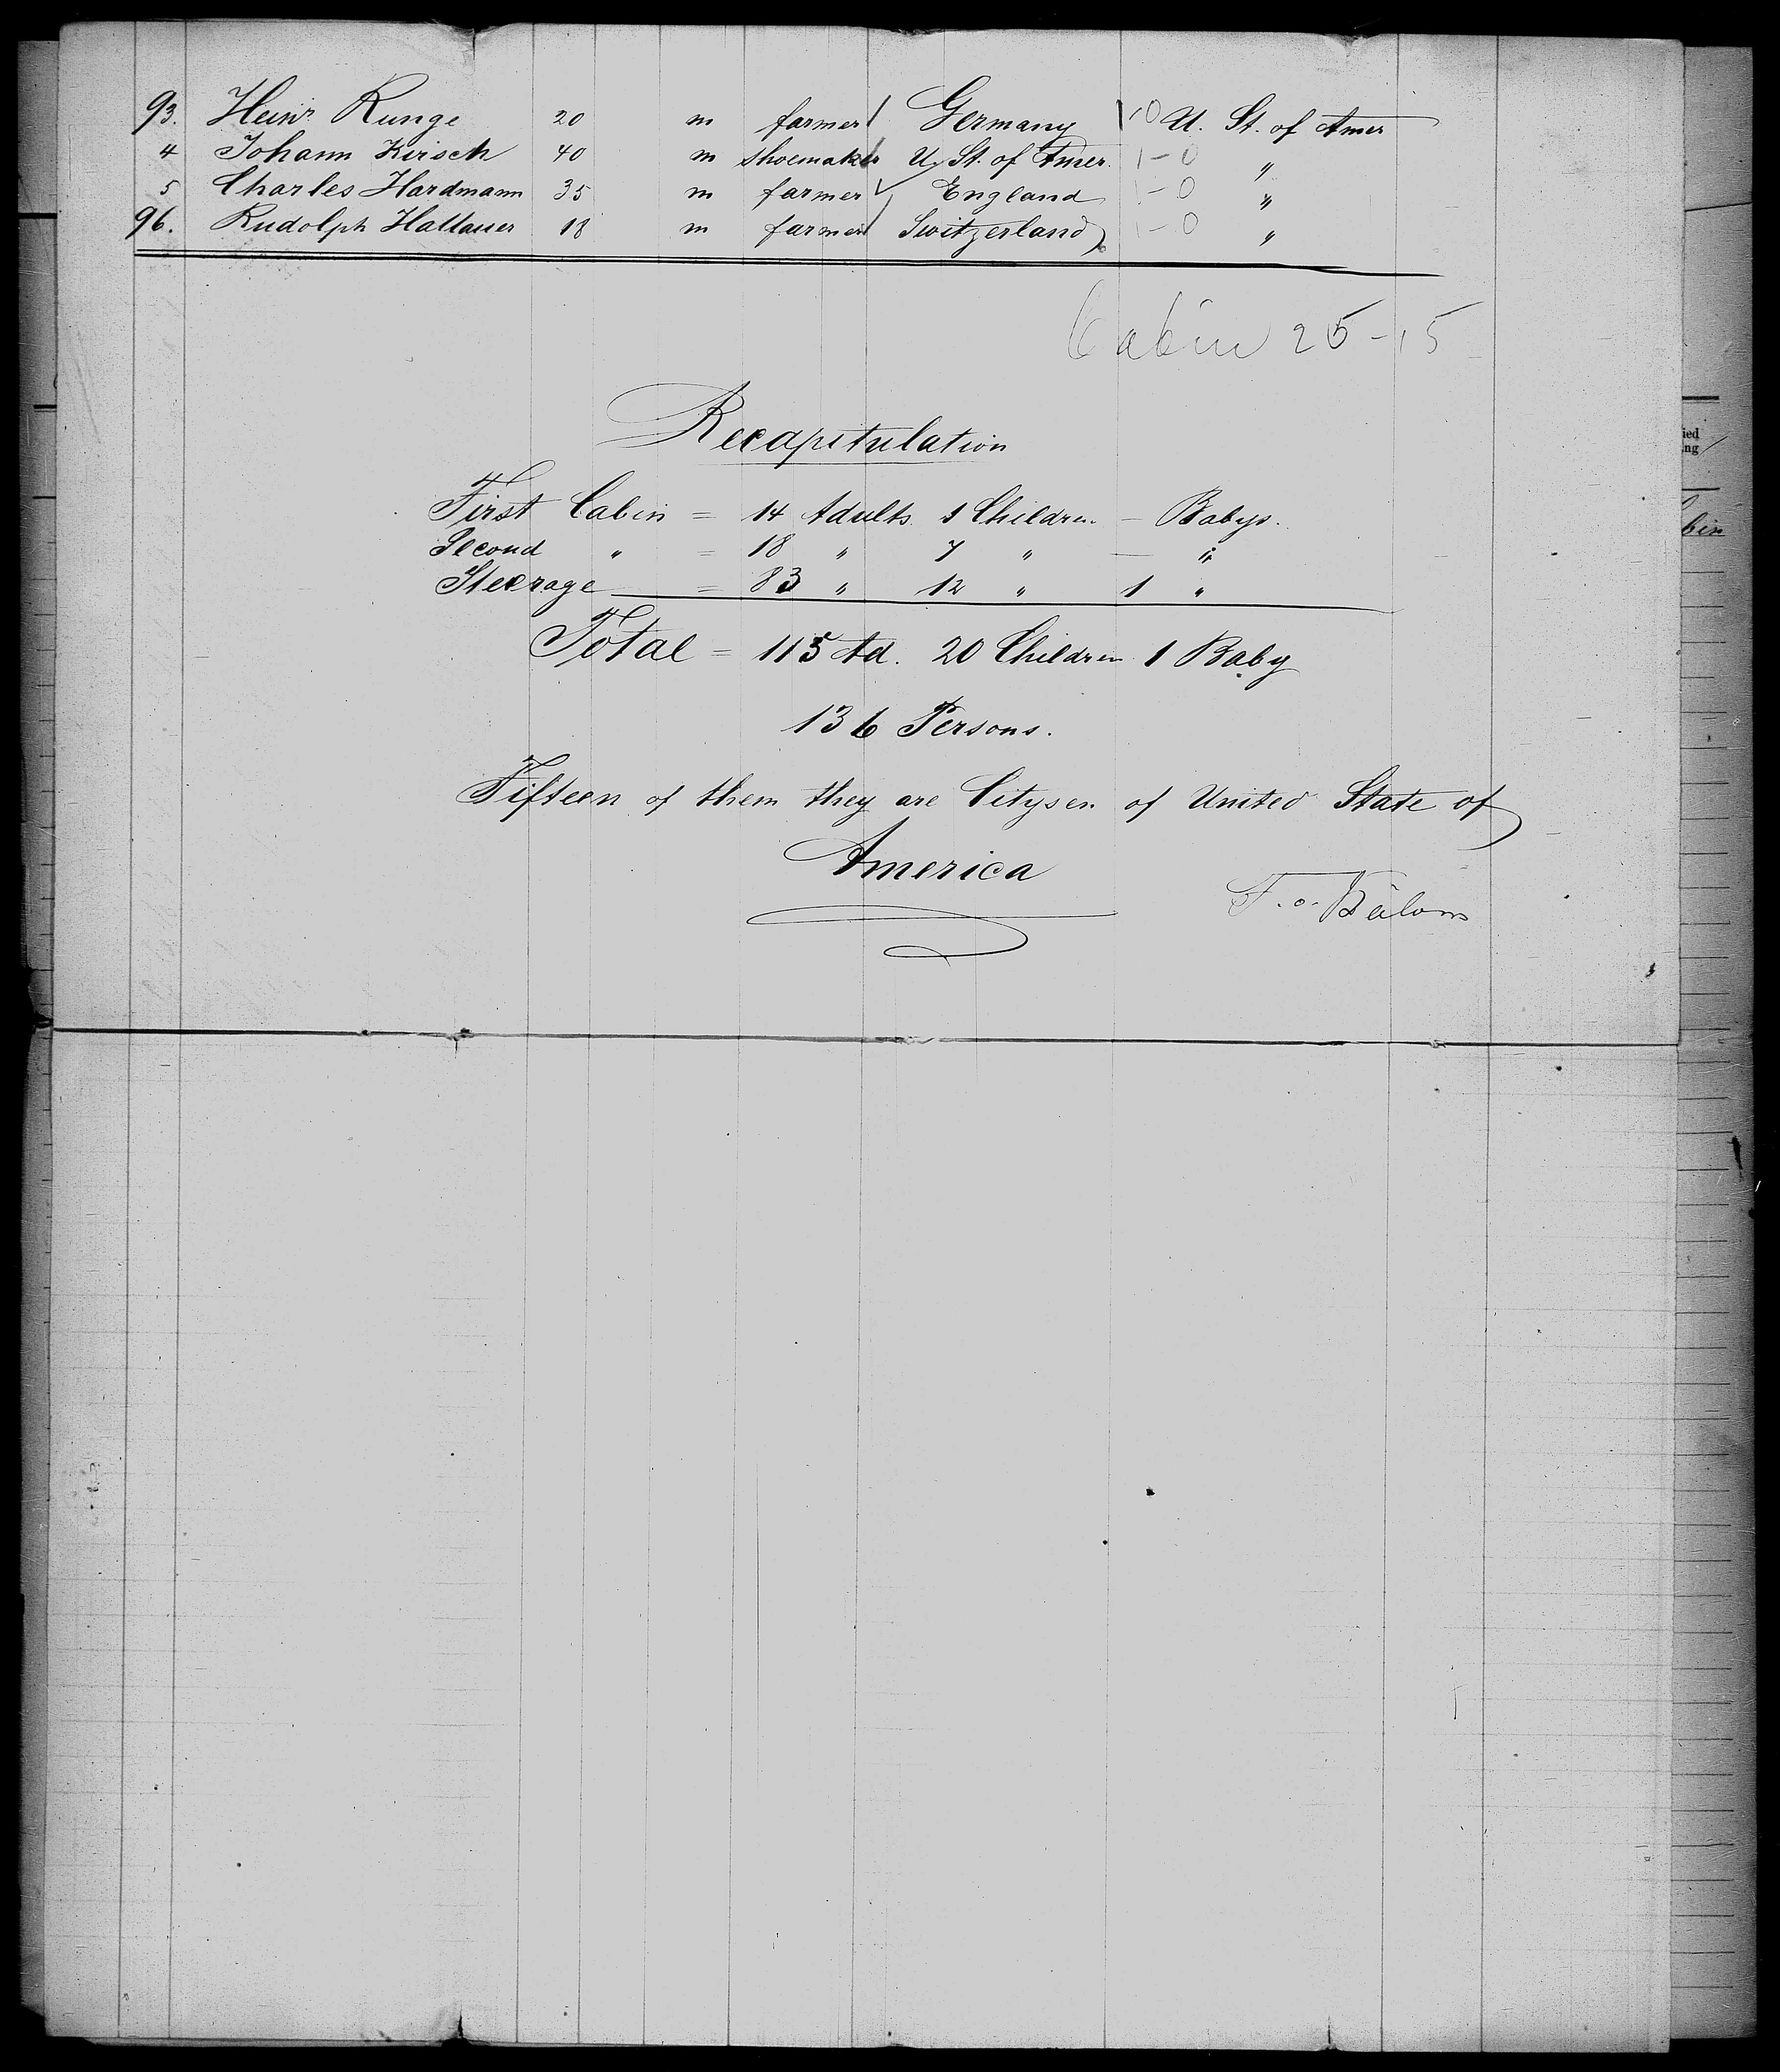 93. Heinr Runge 20 m farmer Germany 1-0 U. St. of Amer
4 Johann Kirsch 40 m shoemaker U. St. of Amer. 1-0 "
5 Charles Hardmann 35 m farmer England 1-0 "
96. Rudolph Hallauer 18 m farmer Switzerland 1-0 "
Cabin 25-15
Recapitulation
First Cabin = 14 Adults 1 Children — Babys.
Second " = 18 " 7 " — "
Steerage = 83 " 12 " 1 "
Total = 115 Ad. 20 Children 1 Baby
136 Persons.
Fifteen of them they are Citysen of United State of
America
ied
ng
bin